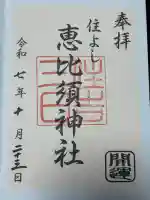 奉拝
住よし
恵比須神社
令和七年十月二十三日
開運